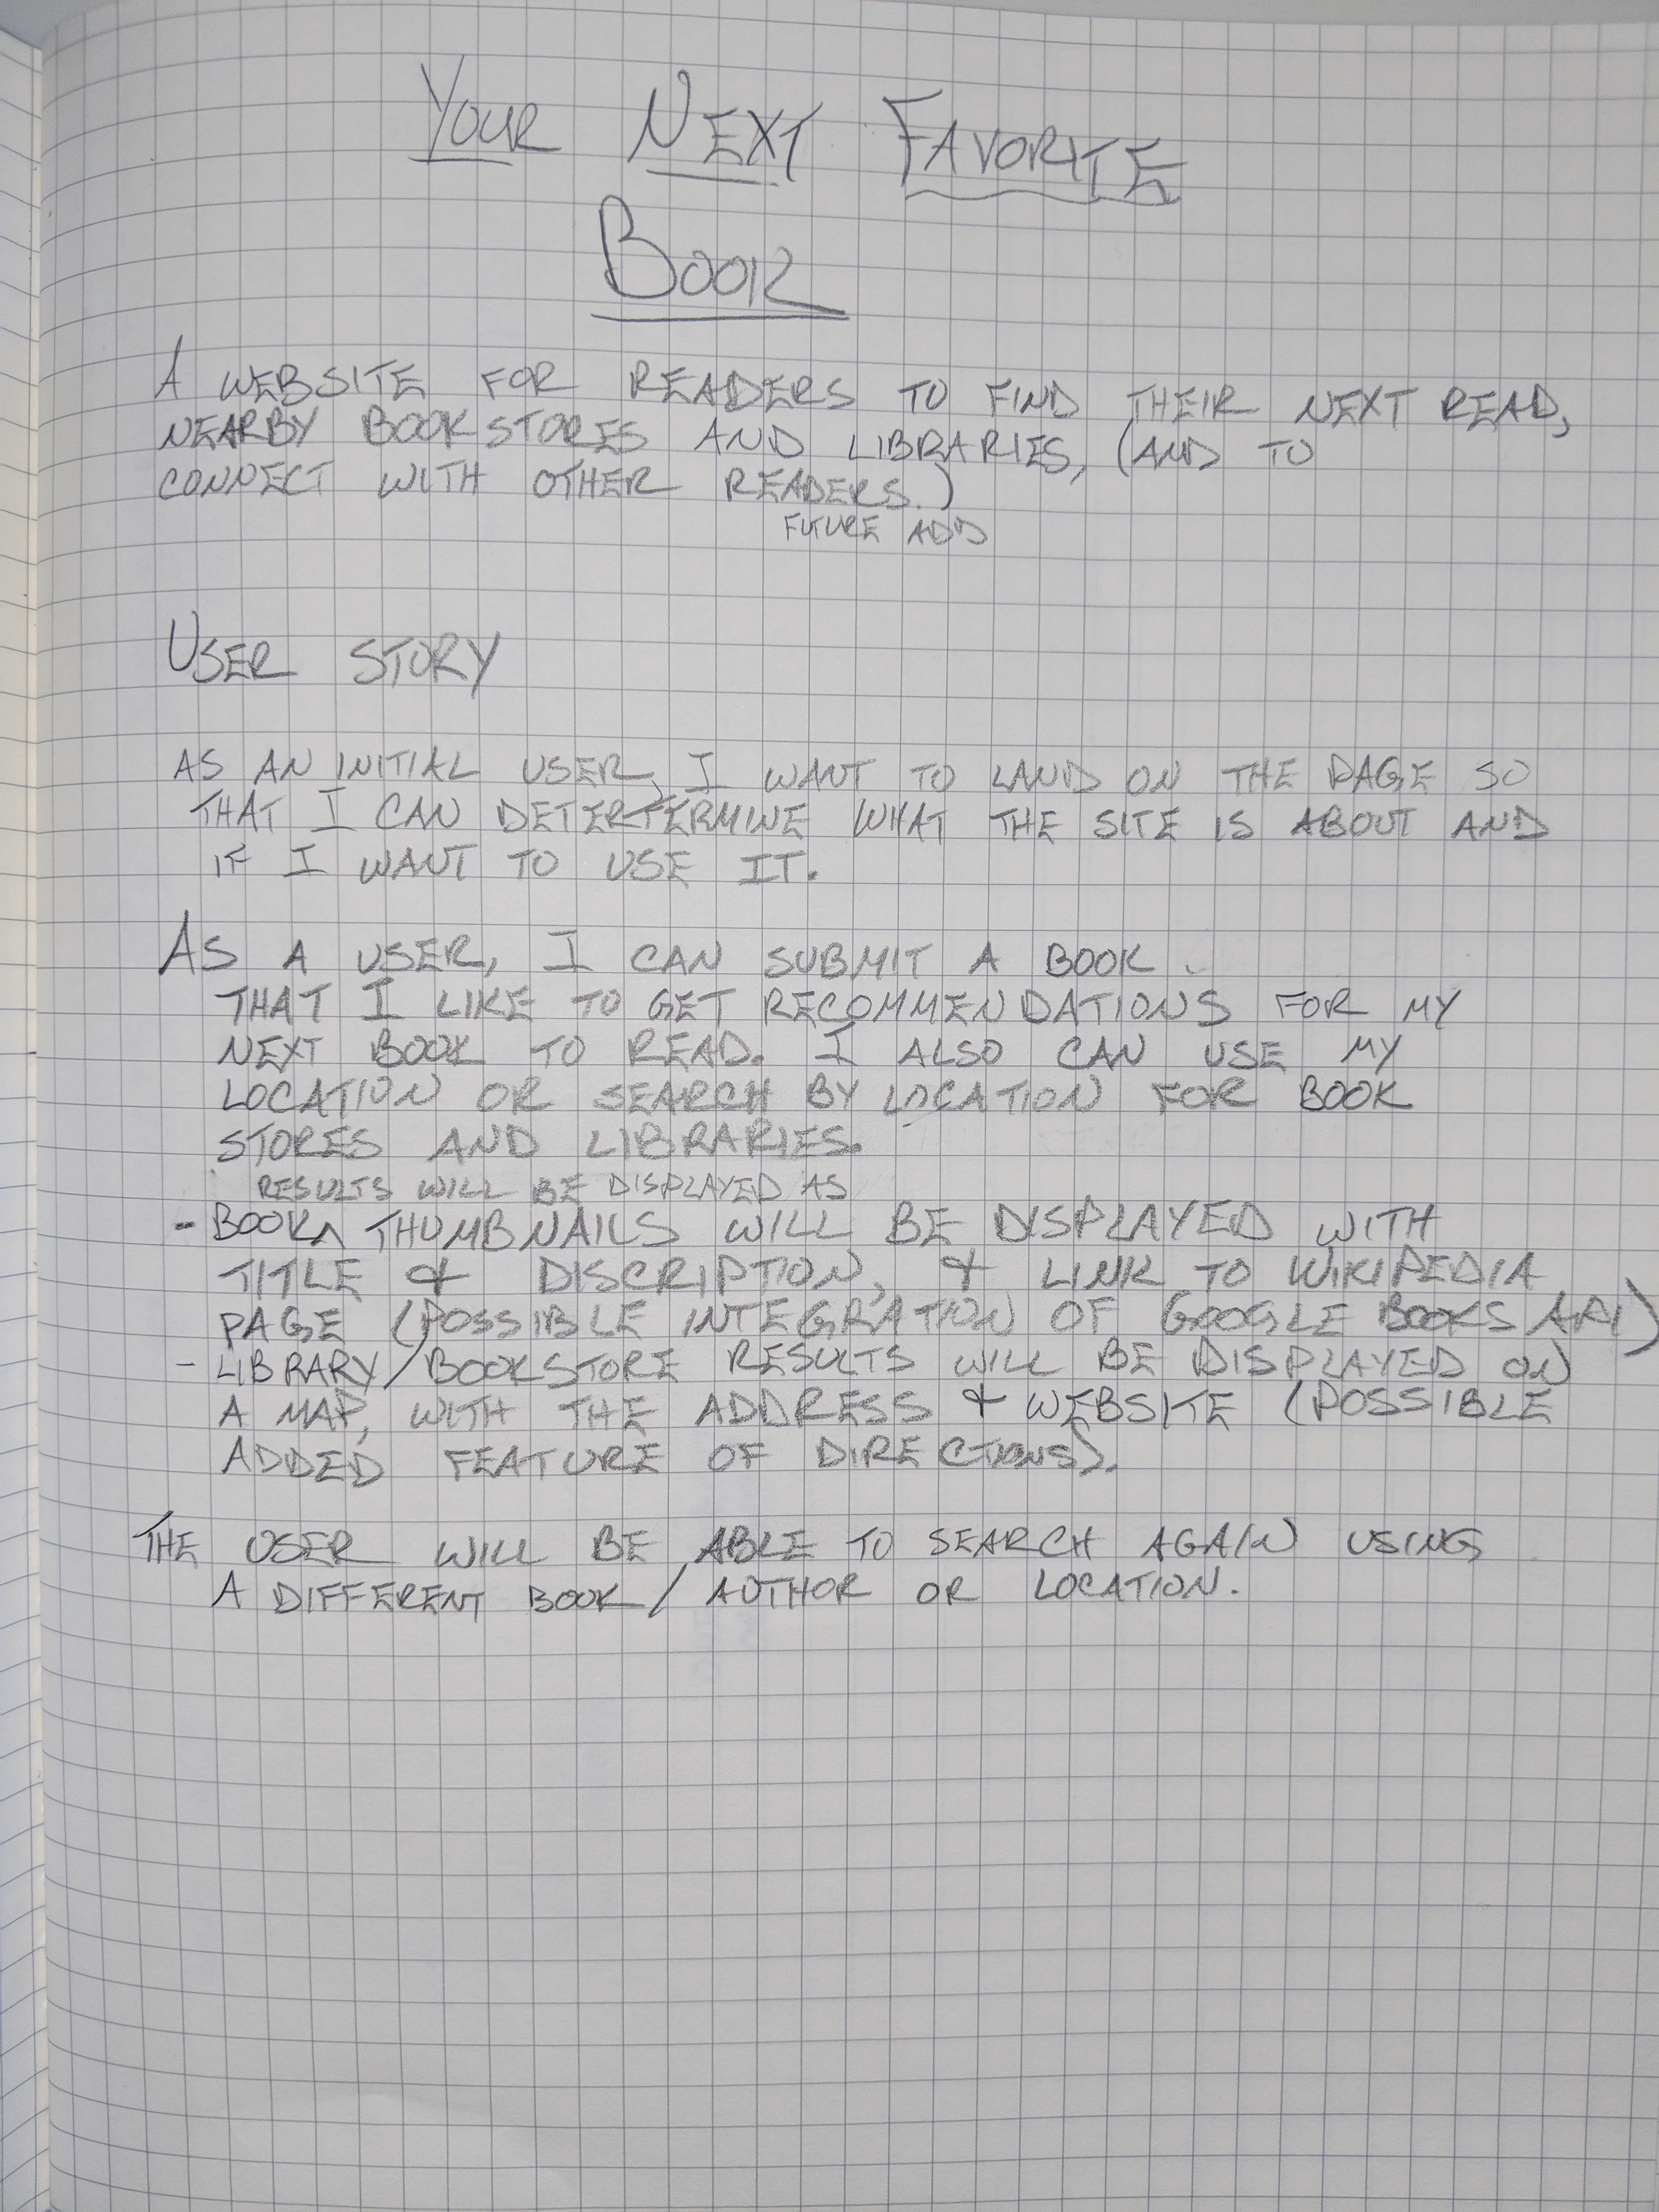 YOUR NEXT FAVORITE
BOOK
A WEBSITE FOR READERS TO FIND THEIR NEXT READ,
NEARBY BOOKSTORES AND LIBRARIES, (AND TO
CONNECT WITH OTHER READERS.)
FUTURE ADD
USER STORY
AS AN INITIAL USER, I WANT TO LAND ON THE PAGE SO
THAT I CAN DETERTERMINE WHAT THE SITE IS ABOUT AND
IF I WANT TO USE IT.
AS A USER, I CAN SUBMIT A BOOK
THAT I LIKE TO GET RECOMMENDATIONS FOR MY
NEXT BOOK TO READ. I ALSO CAN USE MY
LOCATION OR SEARCH BY LOCATION FOR BOOK
STORES AND LIBRARIES.
RESULTS WILL BE DISPLAYED AS
- BOOK^ THUMBNAILS WILL BE DISPLAYED WITH
TITLE & DISCRIPTION, & LINK TO WIKIPEDIA
PAGE (POSSIBLE INTEGRATION OF GOOGLE BOOKS API)
- LIBRARY/BOOKSTORE RESULTS WILL BE DISPLAYED ON
A MAP, WITH THE ADDRESS & WEBSITE (POSSIBLE
ADDED FEATURE OF DIRECTIONS).
THE USER WILL BE ABLE TO SEARCH AGAIN USING
A DIFFERENT BOOK/AUTHOR OR LOCATION.